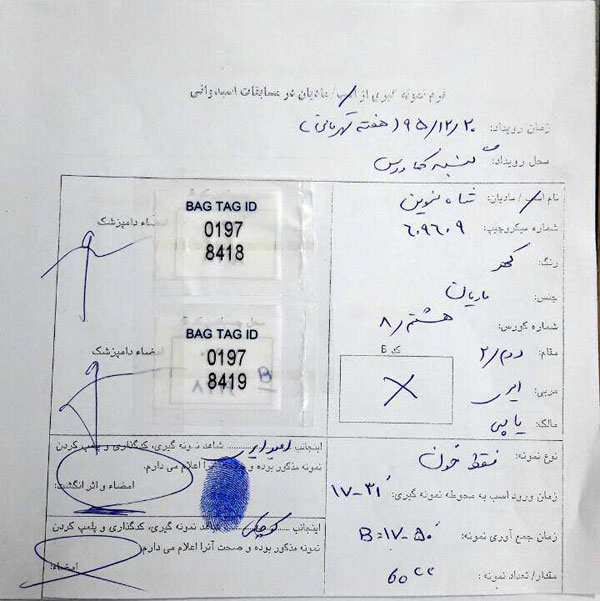 فرم نمونه گیری از اسب / مادیان در مسابقات اسبدوانی
زمان رویداد: ۹۵/۱۲/۲۰ (هفته قهرمانی)
محل رویداد: گنبد
نام اسب / مادیان:
شماره میکروچیپ: ۶۰۹۶۰۹
رنگ: کهر
جنس: مادیان
شماره کورس: هشتم / ۸
مقام: دوم / ۲
مربی:
مالک:
کد B
امضاء دامپزشک
BAG TAG ID
0197
8418
امضاء دامپزشک
BAG TAG ID
0197
8419
B
نوع نمونه: فقط خون
زمان ورود اسب به محوطه نمونه گیری: ۱۷-۳۱
زمان جمع آوری نمونه: B=۱۷-۵۰
مقدار/ تعداد نمونه: 60 cc
اینجانب شاهد نمونه گیری، کدگذاری و پلمپ کردن
نمونه مذکور بوده و صحت آنرا اعلام می دارم.
امضاء و اثر انگشت:
اینجانب شاهد نمونه گیری، کدگذاری و پلمپ کردن
نمونه مذکور بوده و صحت آنرا اعلام می دارم.
امضاء: